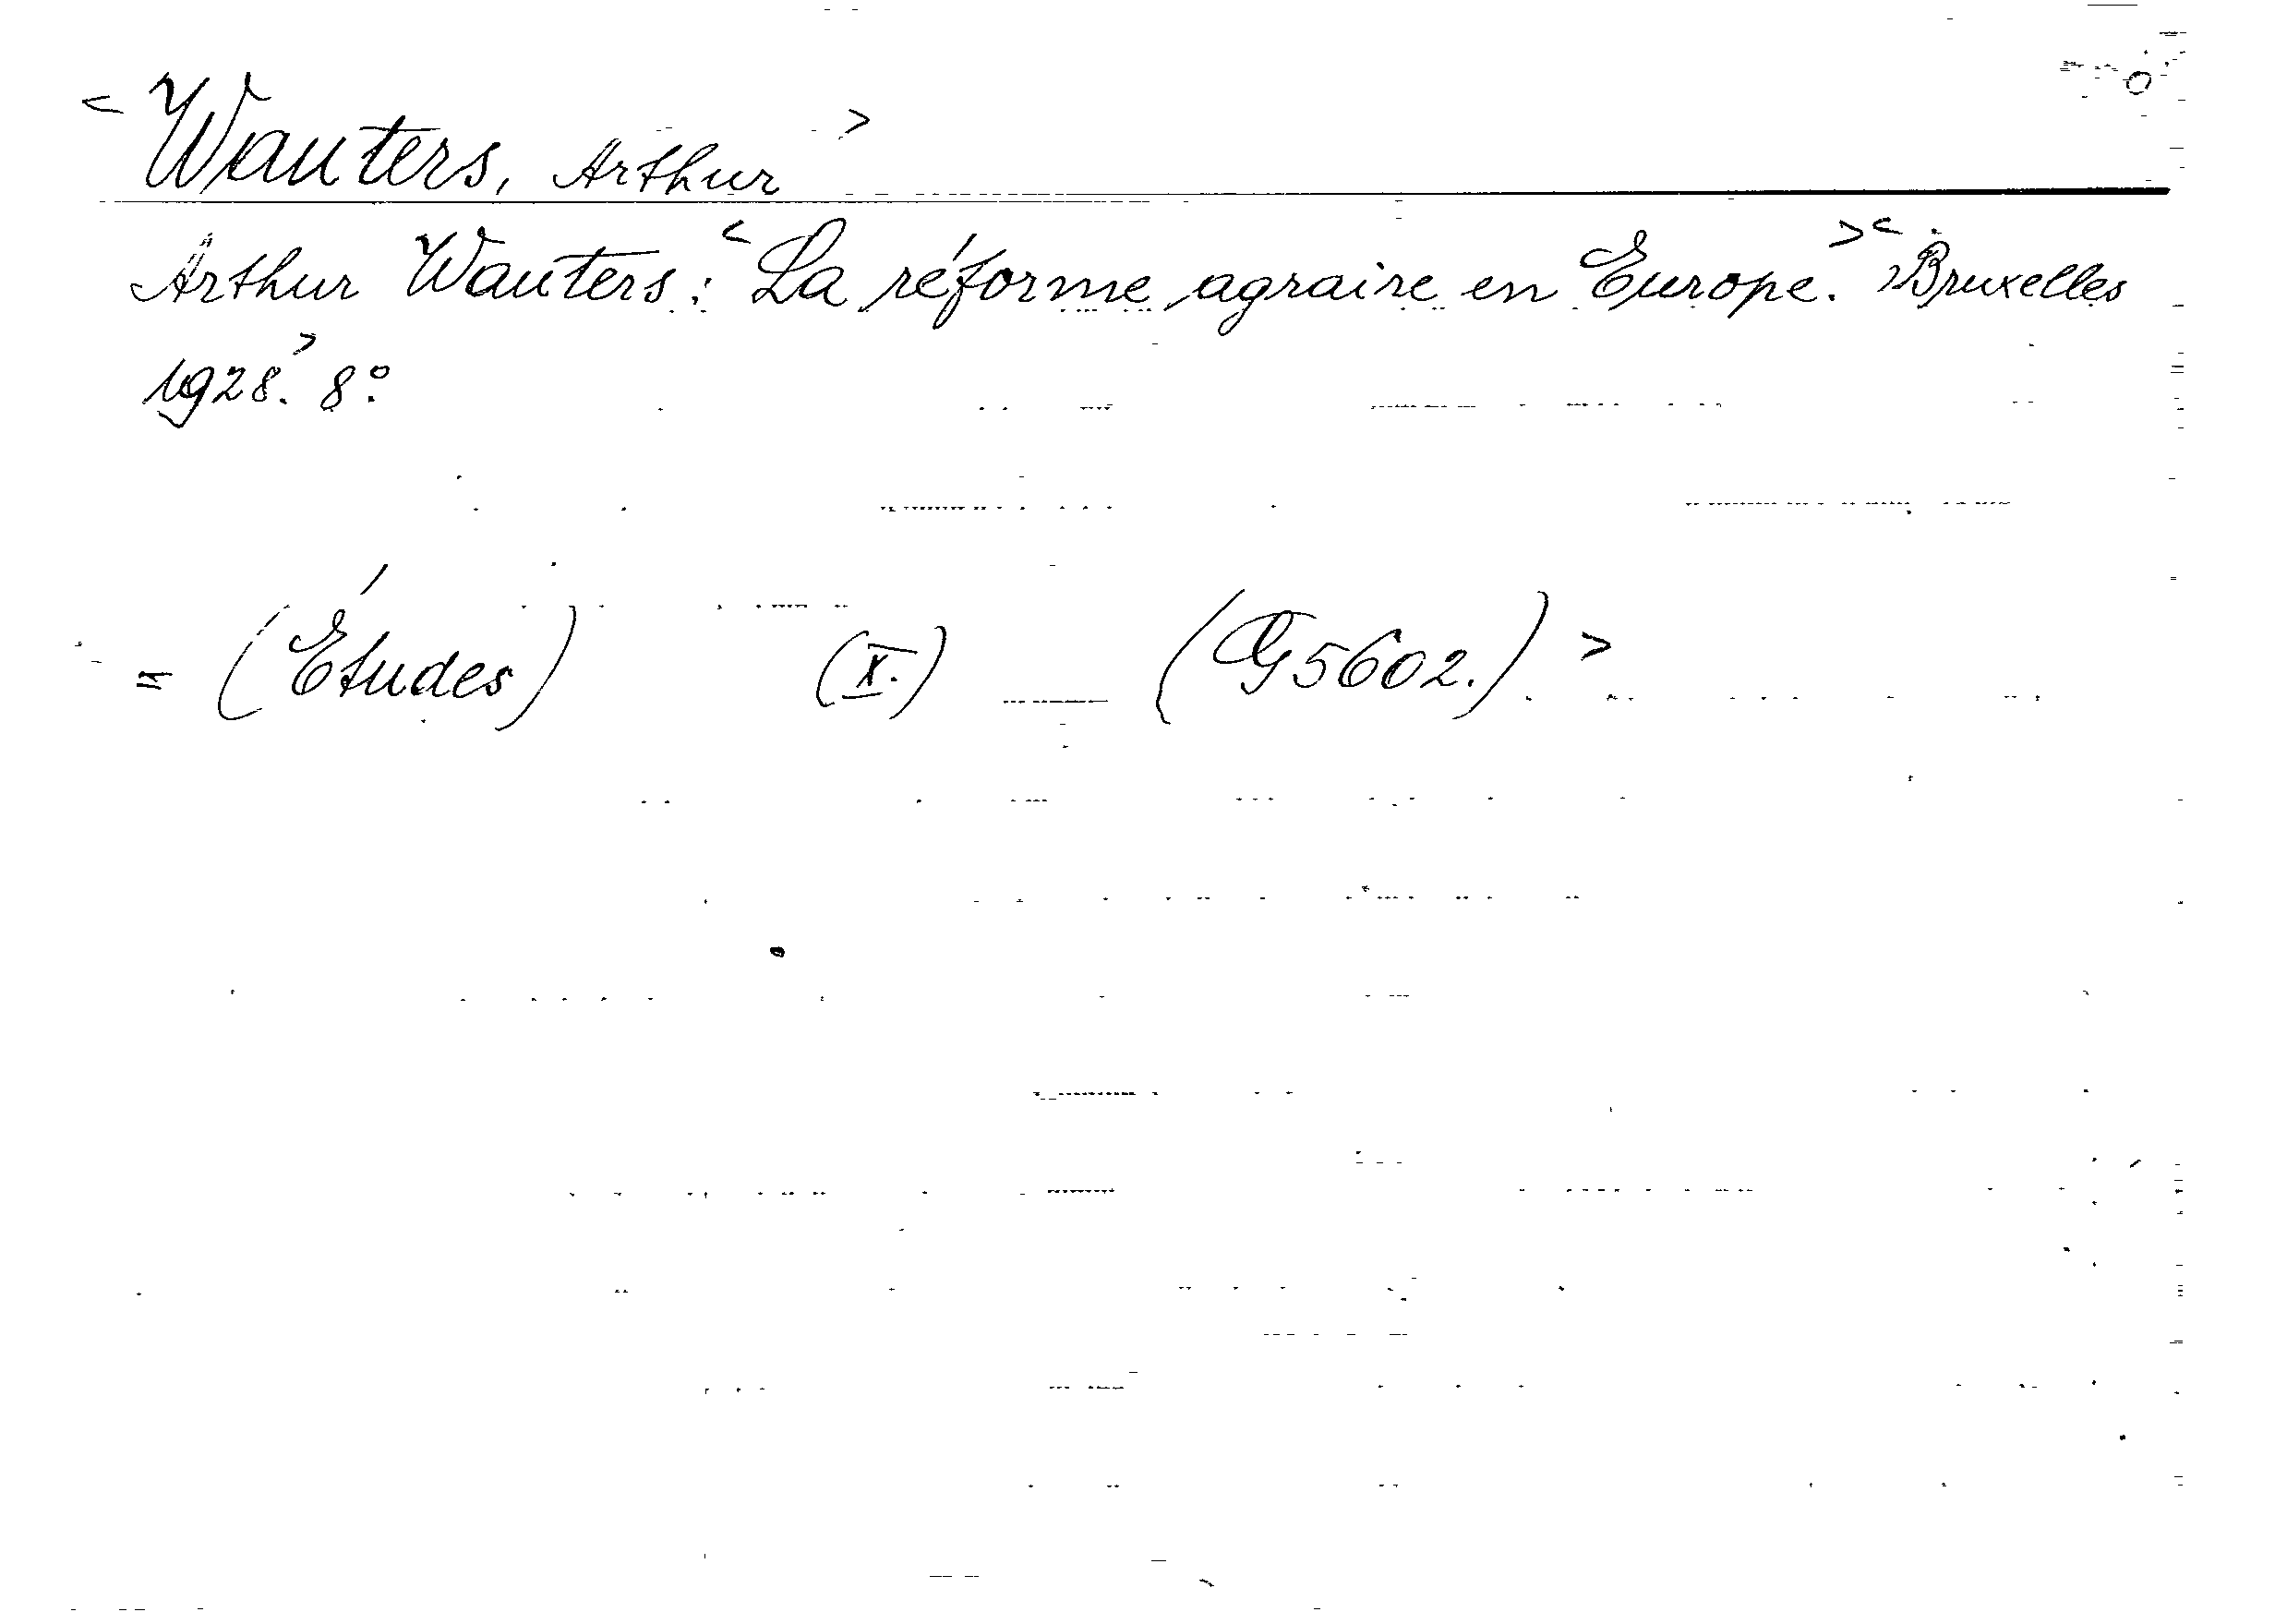 < Wauters, Arthur >
Arthur Wauters: < La réforme agraire en Europe. > < Bruxelles
1928. > 8°.
= (Études) (X.) (G5602.) >